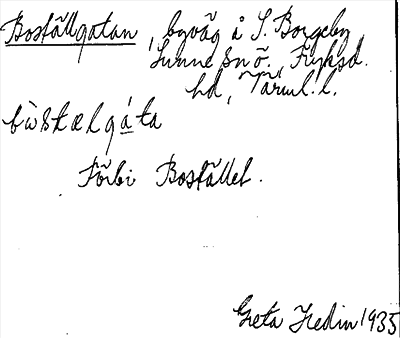 Boställgatan, byväg å S. Borgeby
Sunne sn ö. Fryksd.
hd, Värml. l.
bùstælgáta
Förbi Bostället.
Greta Hedin 1935